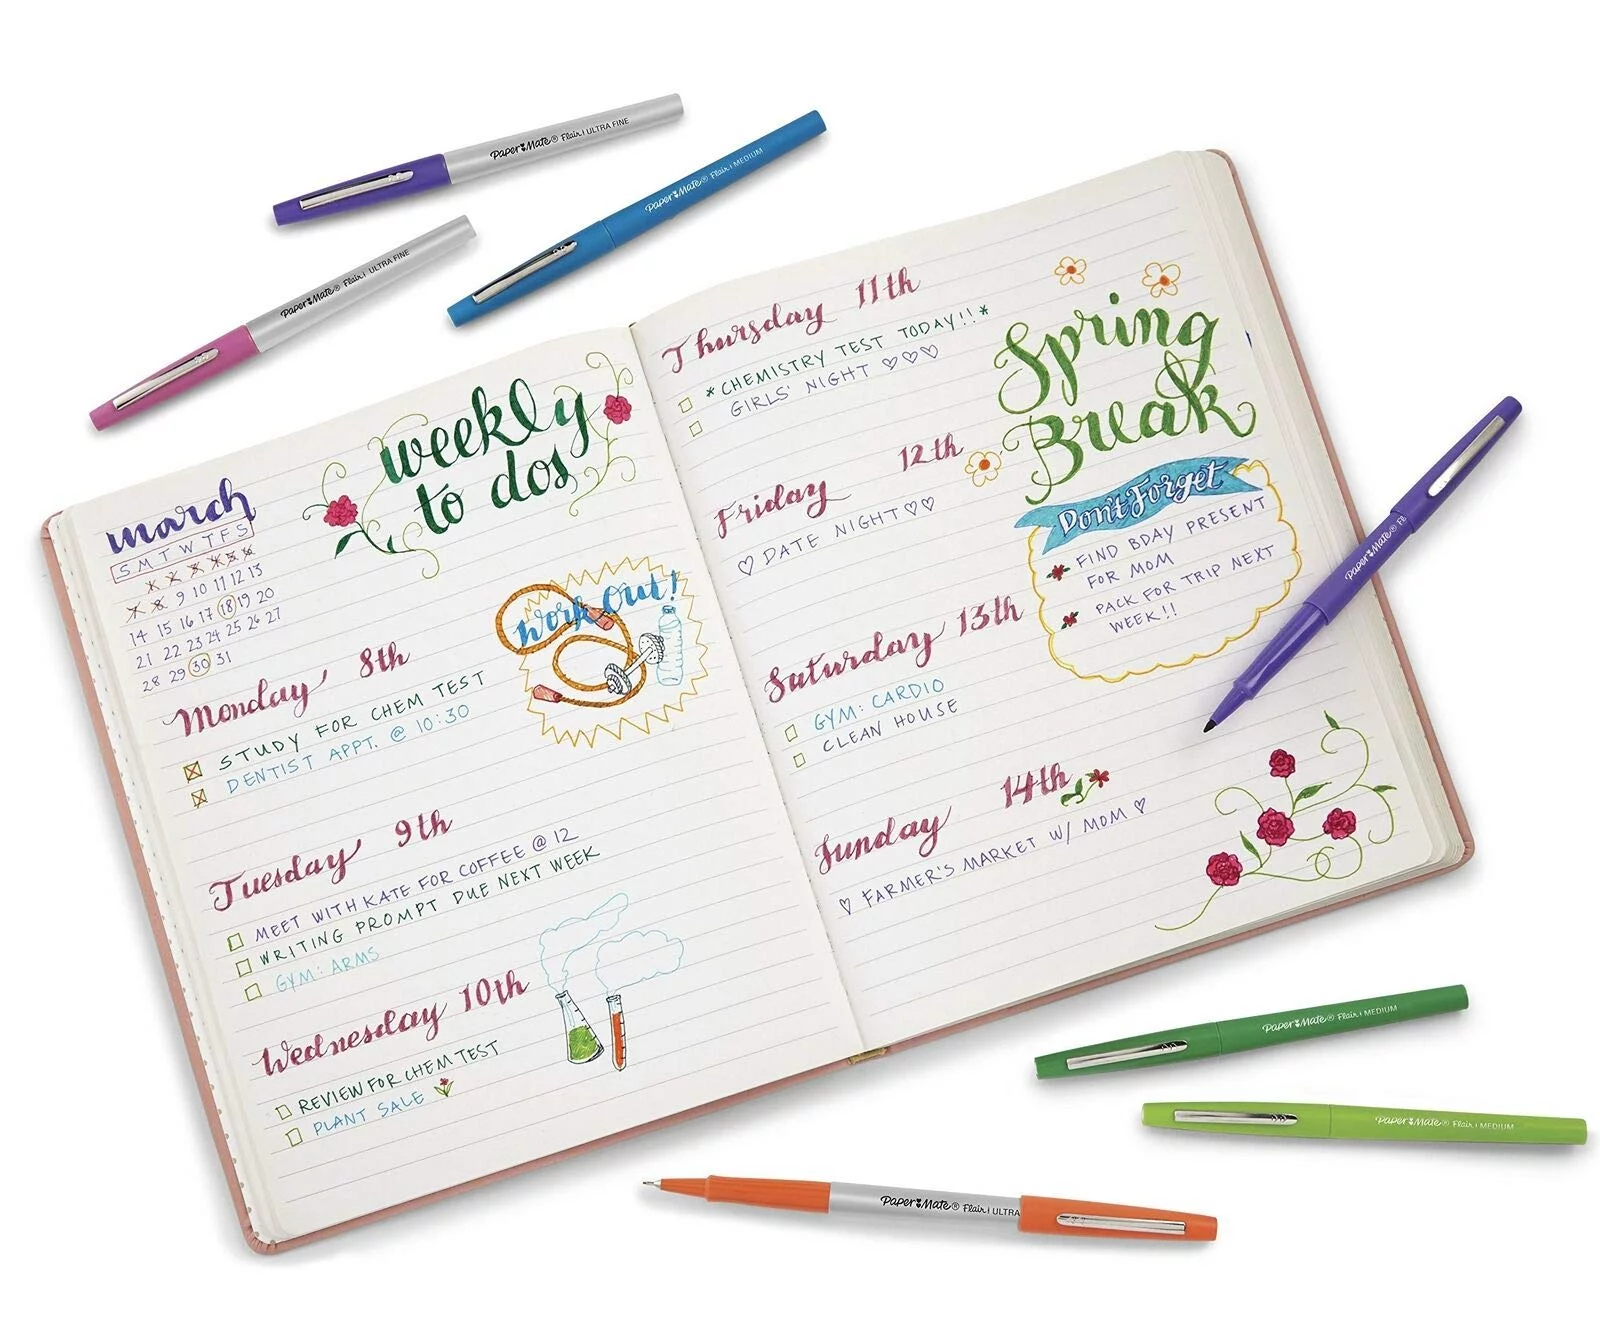 Paper Mate® Flair | ULTRA FINE
Paper Mate® Flair | MEDIUM
Paper Mate® Flair | ULTRA FINE
weekly
to dos
march
S M T W T F S
9 10 11 12 13
14 15 16 17 18 19 20
21 22 23 24 25 26 27
28 29 30 31
Work Out!
Monday 8th
STUDY FOR CHEM TEST
DENTIST APPT. @ 10:30
Tuesday 9th
MEET WITH KATE FOR COFFEE @ 12
WRITING PROMPT DUE NEXT WEEK
GYM: ARMS
Wednesday 10th
REVIEW FOR CHEM TEST
PLANT SALE
Thursday 11th
*CHEMISTRY TEST TODAY!!*
GIRLS' NIGHT ♡♡♡
Friday 12th
♡ DATE NIGHT ♡♡
Saturday 13th
GYM: CARDIO
CLEAN HOUSE
Sunday 14th
♡ FARMER'S MARKET W/ MOM ♡
Spring
Break
Don't Forget
FIND BDAY PRESENT
FOR MOM
PACK FOR TRIP NEXT
WEEK!!
Paper Mate®
Paper Mate® Flair | MEDIUM
Paper Mate® Flair | MEDIUM
Paper Mate® Flair | ULTRA